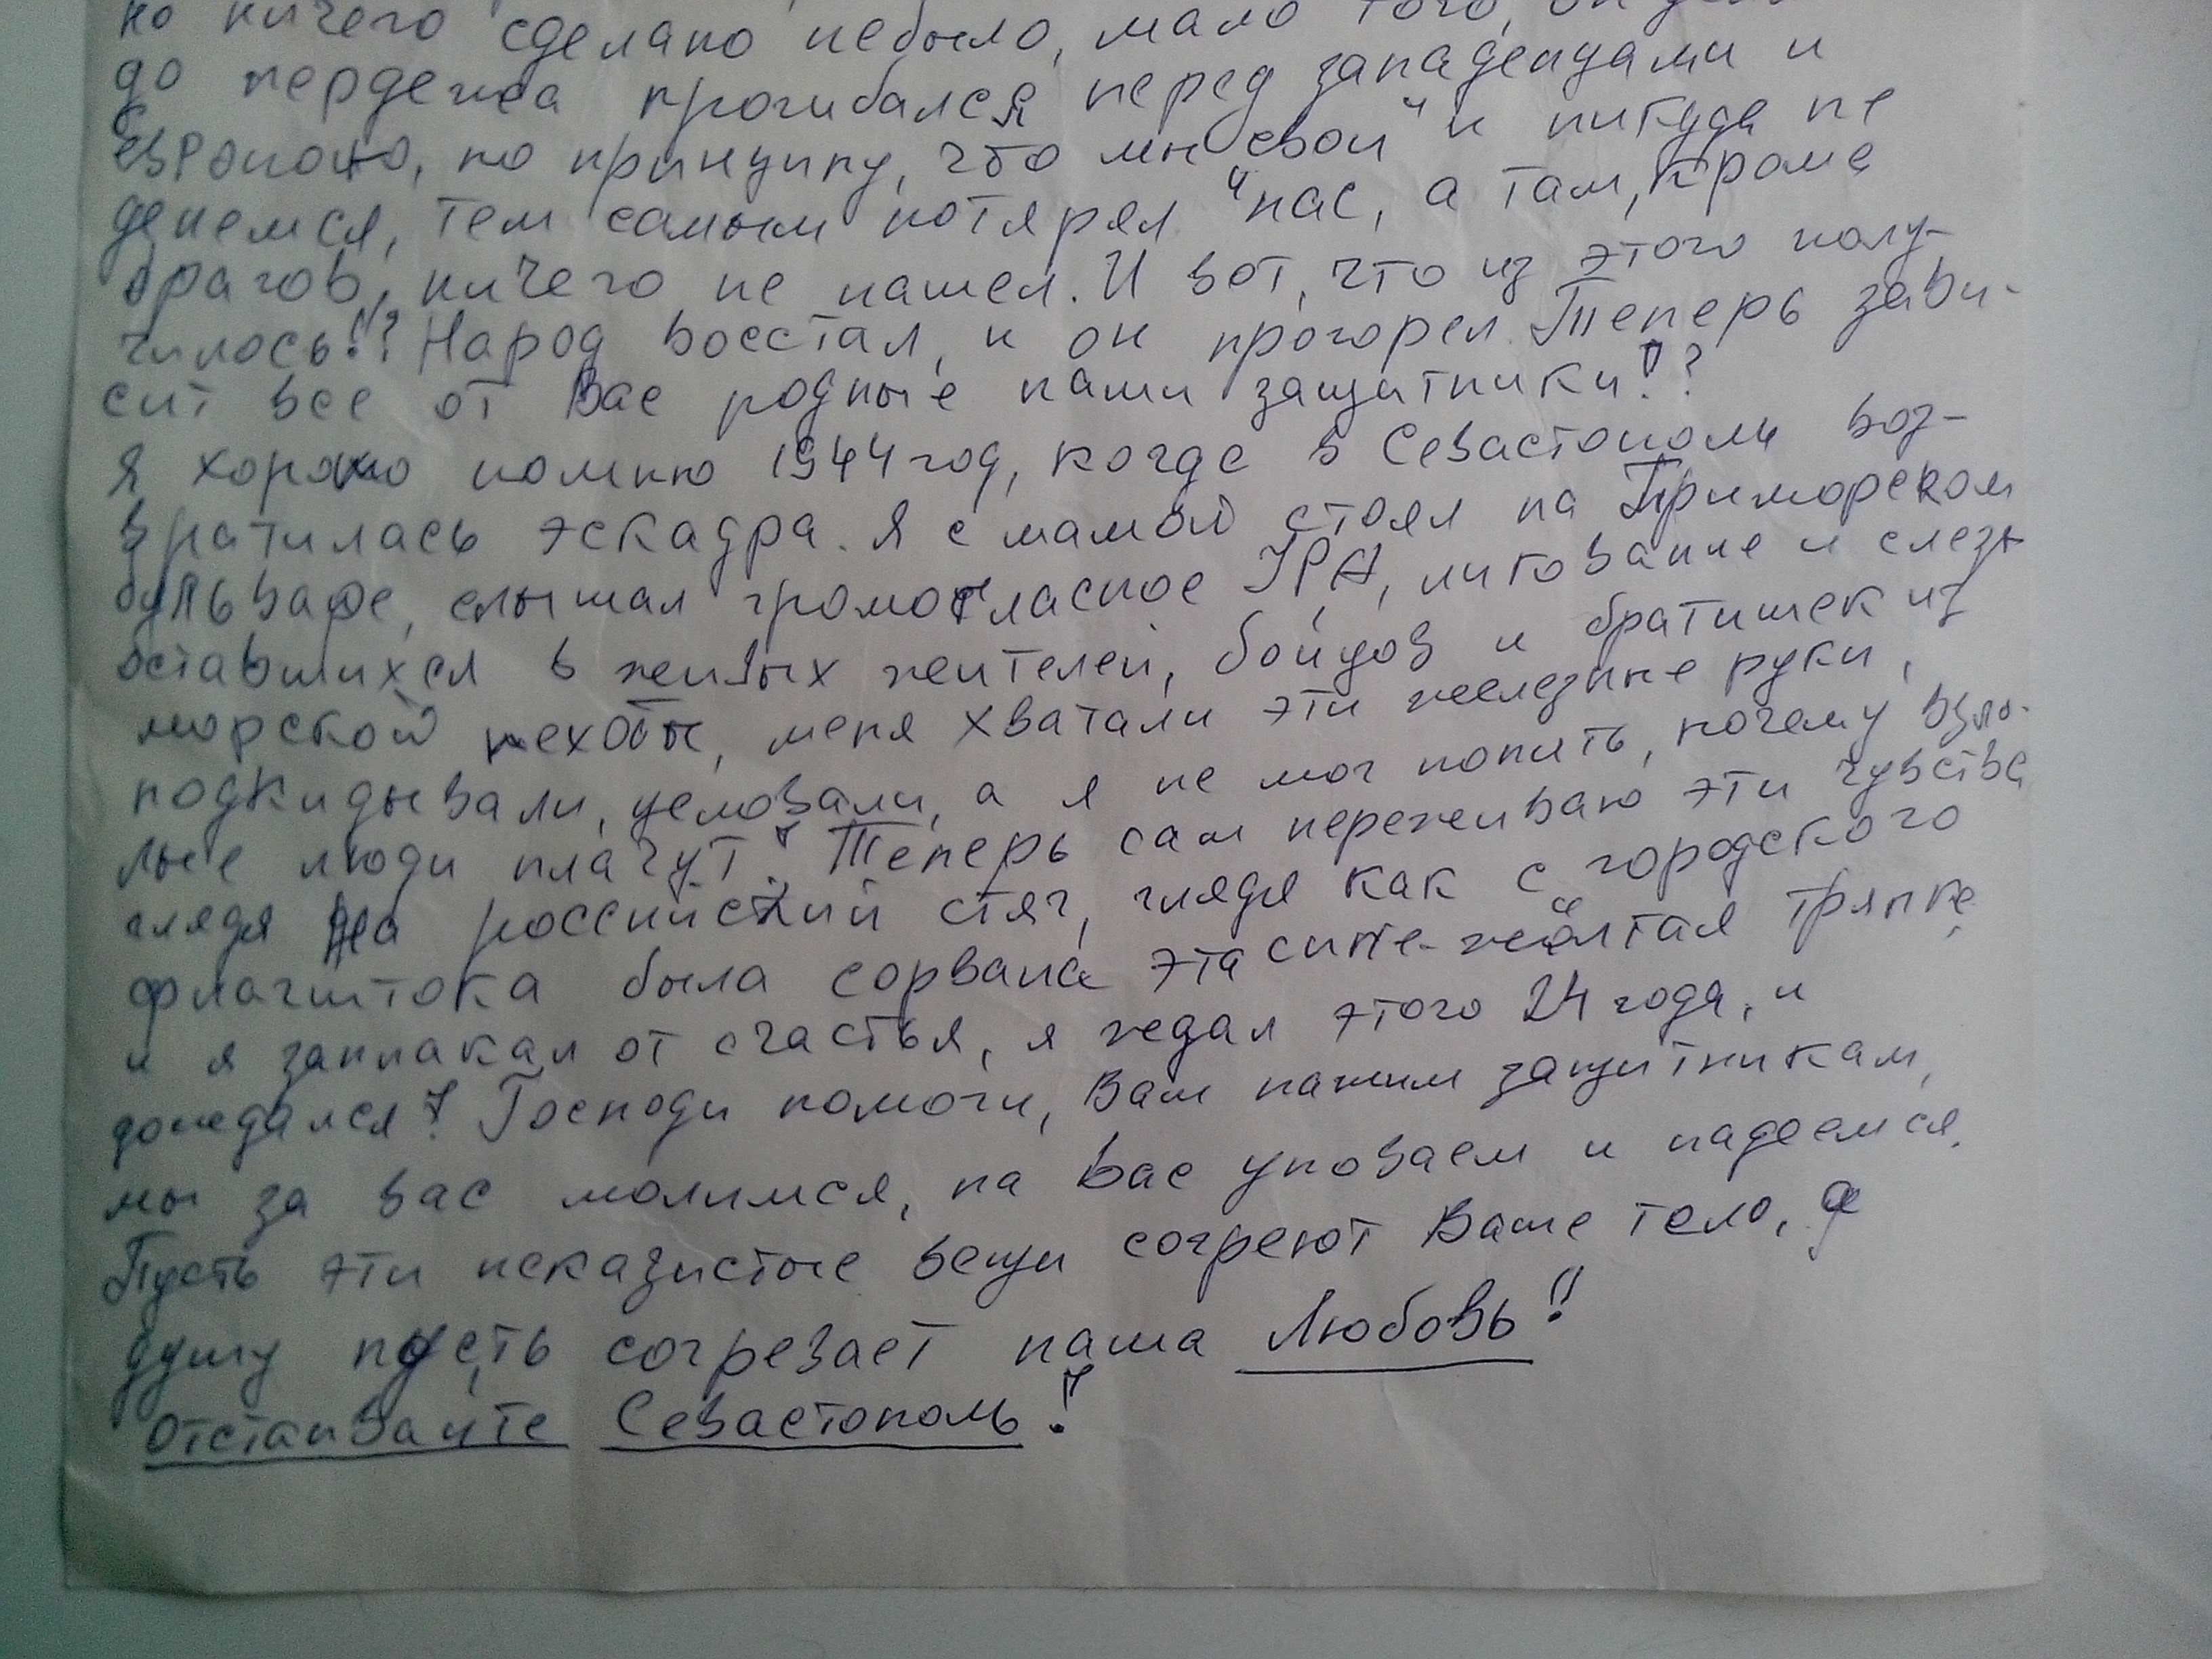 но ничего сделано небыло, мало того, он
до пердежа прогибался перед западендами и
Европою, по принципу, что мы "свои" и никуда не
денемся, тем самым потярял нас, а там, кроме
врагов, ничего не нашел. И вот, что из этого полу-
чилось!!? Народ восстал, и он прогорел. Теперь зави-
сит все от Вас родные наши защитники!?
Я хорошо помню 1944 год, когда в Севастополь воз-
вратилась эскадра. Я с мамой стоял на Приморском
бульваре, слышал громогласное УРА, ликование и слезы
оставшихся в живых жителей, бойцов и братишек из
морской пехоты, меня хватали эти железные руки,
подкидывали, целовали, а я не мог понять, почему взро-
лые люди плачут! Теперь сам переживаю эти чувства
глядя на российский стяг, глядя как с городского
флагштока была сорвана эта сине-жёлтая тряпка,
и я заплакал от счастья, я ждал этого 24 года, и
дождался! Господи помоги, Вам нашим защитникам,
мы за вас молимся, на Вас уповаем и надеемся.
Пусть эти неказистые вещи согреют Ваше тело, а
душу пусть согревает наша Любовь!!
Отстаивайте Севастополь!